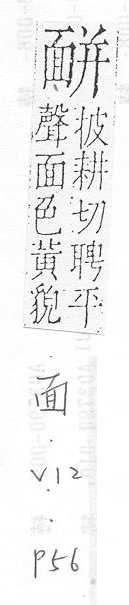 䩇
披耕切聘平
聲面色黃貌
面
.
v.12
.
p56